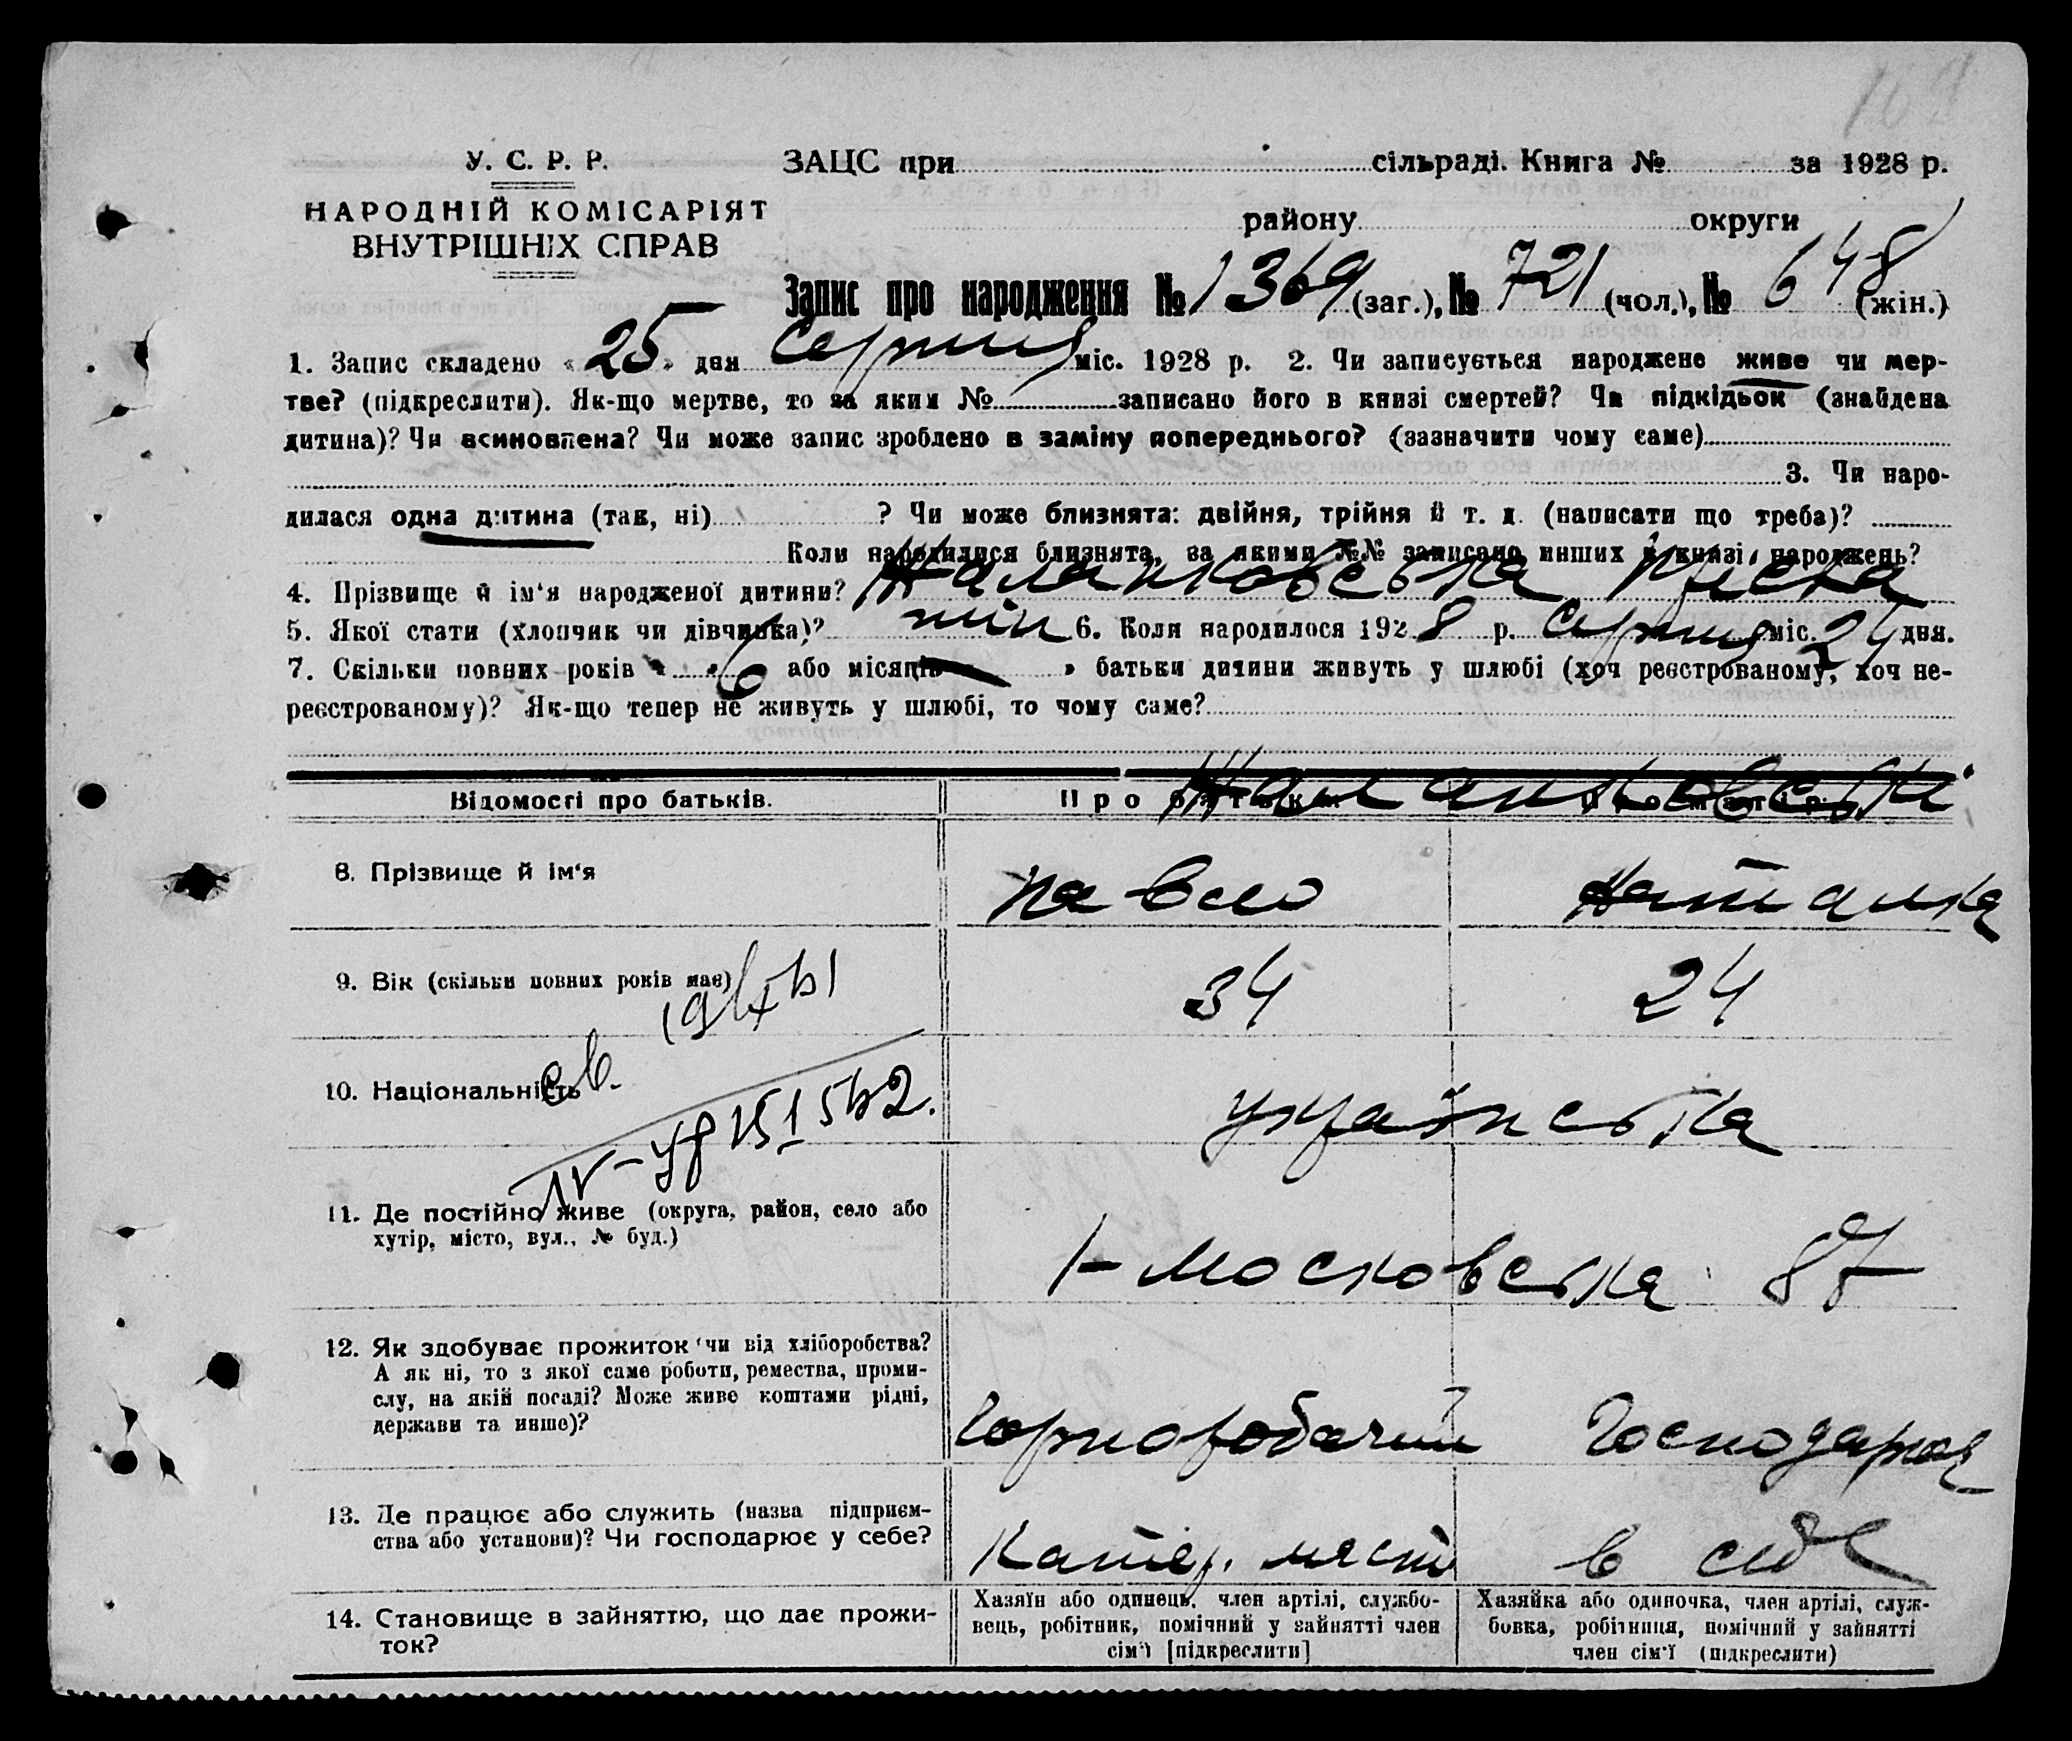 У. С. Р. Р.
НАРОДНІЙ КОМІСАРІЯТ
ВНУТРІШНІХ СПРАВ
ЗАЦС при сільраді. Книга № за 1928 р.
району округи
Запис про народження № 1369 (заг.), № 721 (чол.), № 648 (жін.)
1. Запис складено « 25 » дня Серпня міс. 1928 р. 2. Чи записується народжене живе чи мер-
тве? (підкреслити). Як-що мертве, то за яким № записано його в книзі смертей? Чи підкідьок (знайдена
дитина)? Чи всиновлена? Чи може запис зроблено в заміну попереднього? (зазначити чому саме)
3. Чи наро-
дилася одна дитина (так, ні) ? Чи може близнята: двійня, трійня й т. д. (написати що треба)?
Коли народилися близнята, за якими №№ записано инших в книзі народжень?
4. Прізвище й ім'я народженої дитини?
5. Якої стати (хлопчик чи дівчинка)? жін 6. Коли народилося 1928 р. Серпня міс. 24 дня.
7. Скільки повних років « 6 або місяців — » батьки дитини живуть у шлюбі (хоч реєстрованому, хоч не-
реєстрованому)? Як-що тепер не живуть у шлюбі, то чому саме?
Відомості про батьків. Про батька Про матір
8. Прізвище й ім'я Павло Наталка
9. Вік (скільки повних років має) 34 24
10. Національність українська
св.
IV-УР 151542.
11. Де постійно живе (округа, район, село або
хутір, місто, вул., № буд.)
1-Московська 87
12. Як здобуває прожиток чи від хліборобства?
А як ні, то з якої саме роботи, ремества, проми-
слу, на якій посаді? Може живе коштами рідні,
держави та инше)?
Чорноробочий Господарка
13. Де працює або служить (назва підприєм-
ства або установи)? Чи господарює у себе?
Катер. в себе
14. Становище в зайняттю, що дає прожи-
ток?
Хазяїн або одинець, член артілі, службо-
вець, робітник, помічний у зайнятті член
сім'ї [підкреслити]
Хазяйка або одиночка, член артілі, служ-
бовка, робітниця, помічний у зайнятті
член сім'ї (підкреслити)